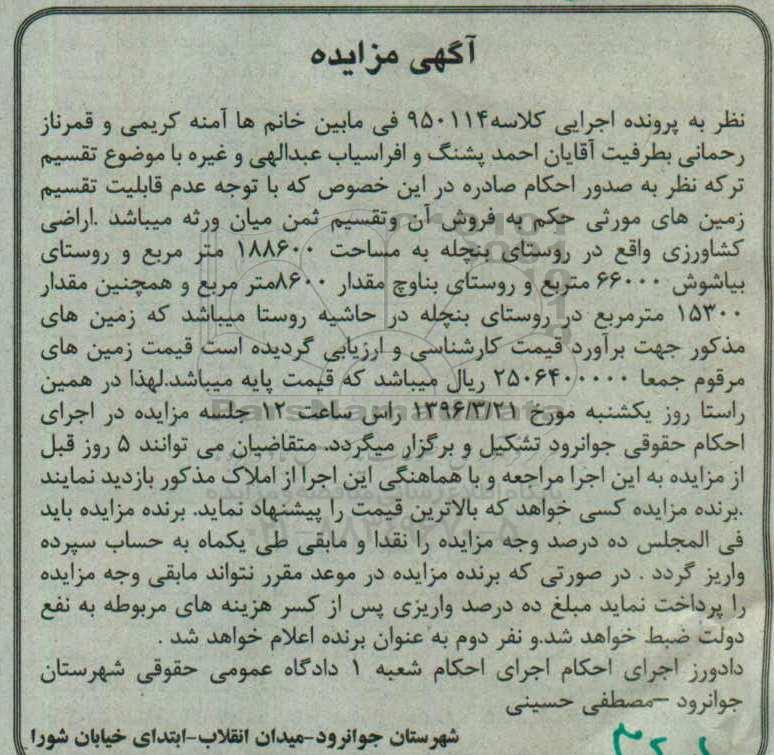 آگهی مزایده
نظر به پرونده اجرایی کلاسه۹۵۰۱۱۴ فی مابین خانم ها آمنه کریمی و قمرناز
رحمانی بطرفیت آقایان احمد پشنگ و افراسیاب عبدالهی و غیره با موضوع تقسیم
ترکه نظر به صدور احکام صادره در این خصوص که با توجه عدم قابلیت تقسیم
زمین های مورثی حکم به فروش آن وتقسیم ثمن میان ورثه میباشد .اراضی
کشاورزی واقع در روستای بنچله به مساحت ۱۸۸۶۰۰ متر مربع و روستای
بیاشوش ۶۶۰۰۰ متربع و روستای بناوچ مقدار ۸۶۰۰متر مربع و همچنین مقدار
۱۵۳۰۰ مترمربع در روستای بنچله در حاشیه روستا میباشد که زمین های
مذکور جهت برآورد قیمت کارشناسی و ارزیابی گردیده است قیمت زمین های
مرقوم جمعا ۲۵۰۶۴۰۰۰۰۰ ریال میباشد که قیمت پایه میباشد.لهذا در همین
راستا روز یکشنبه مورخ ۱۳۹۶/۳/۲۱ راس ساعت ۱۲ جلسه مزایده در اجرای
احکام حقوقی جوانرود تشکیل و برگزار میگردد. متقاضیان می توانند ۵ روز قبل
از مزایده به این اجرا مراجعه و با هماهنگی این اجرا از املاک مذکور بازدید نمایند
.برنده مزایده کسی خواهد که بالاترین قیمت را پیشنهاد نماید. برنده مزایده باید
فی المجلس ده درصد وجه مزایده را نقدا و مابقی طی یکماه به حساب سپرده
واریز گردد . در صورتی که برنده مزایده در موعد مقرر نتواند مابقی وجه مزایده
را پرداخت نماید مبلغ ده درصد واریزی پس از کسر هزینه های مربوطه به نفع
دولت ضبط خواهد شد.و نفر دوم به عنوان برنده اعلام خواهد شد .
دادورز اجرای احکام اجرای احکام شعبه ۱ دادگاه عمومی حقوقی شهرستان
جوانرود –مصطفی حسینی
شهرستان جوانرود-میدان انقلاب-ابتدای خیابان شورا